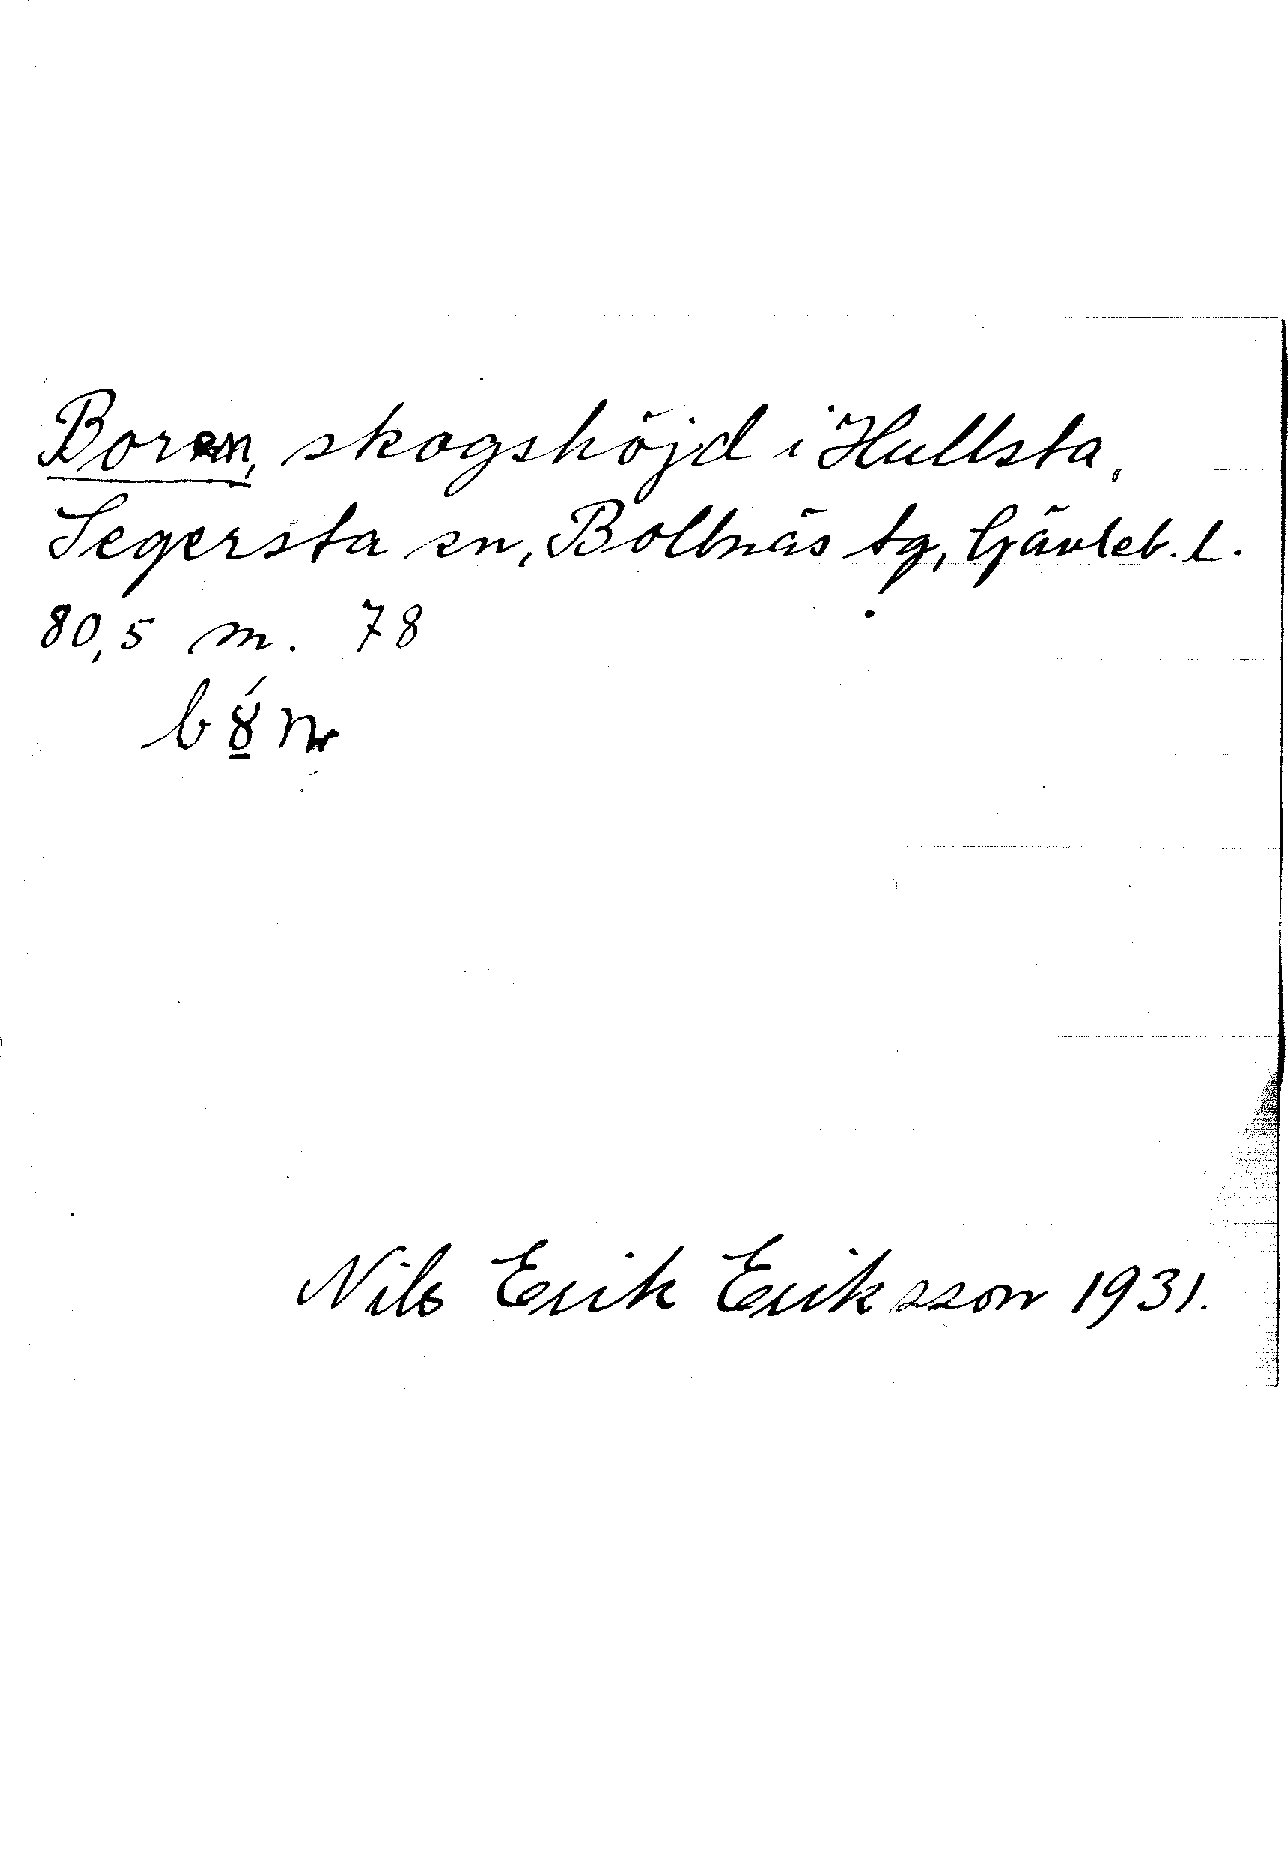 Boren, skogshöjd i Hullsta,
Segersta sn, Bollnäs tg, Gävleb. l.
80,5 m. 78
Nils Erik Eriksson 1931.